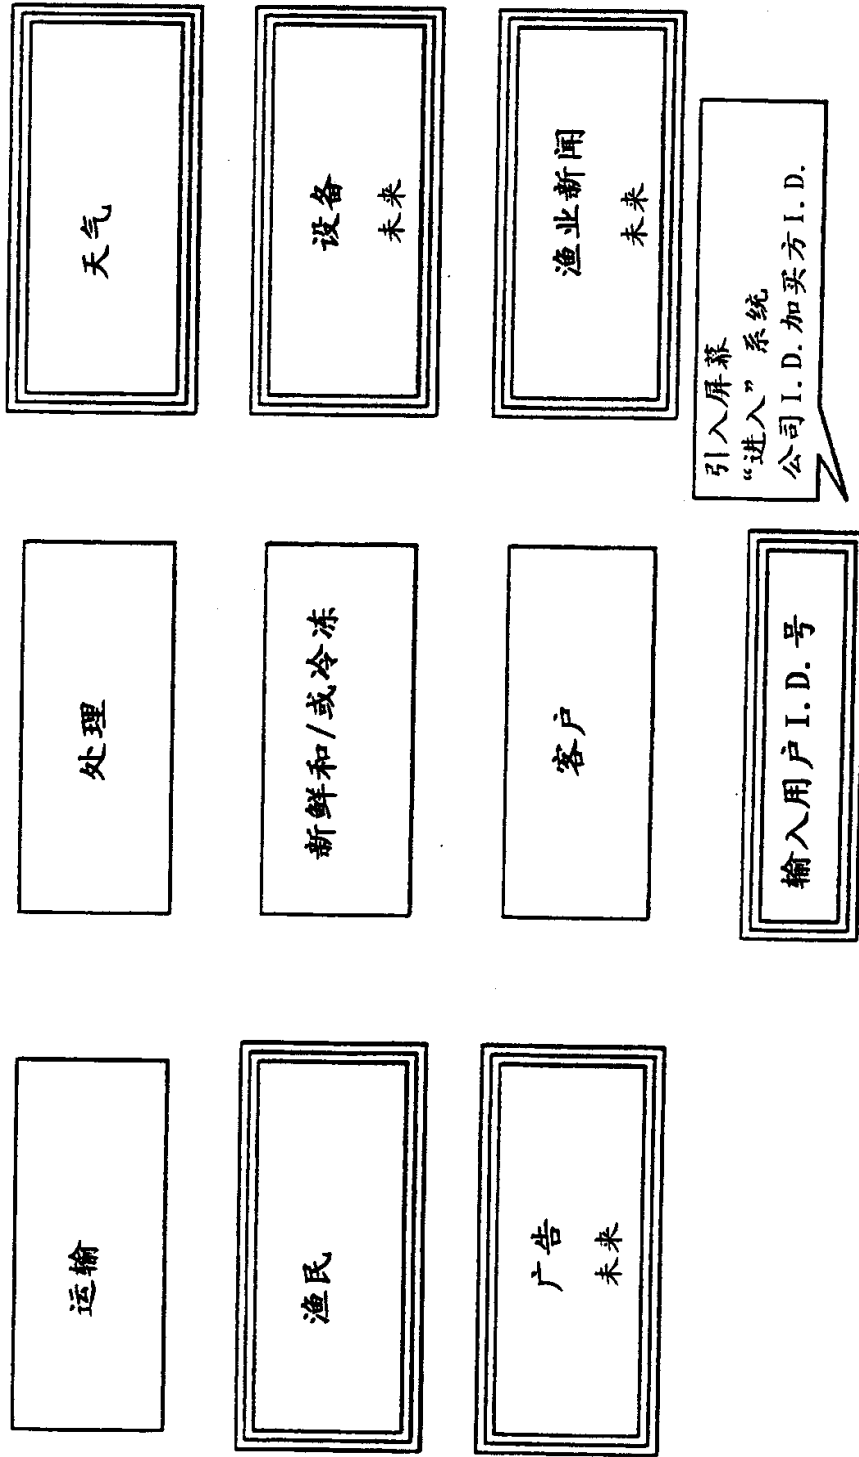 运输
处理
天气
渔民
新鲜和/或冷冻
设备
未来
广告
未来
客户
渔业新闻
未来
输入用户I.D.号
引入屏幕
“进入”系统
公司I.D.加买方I.D.